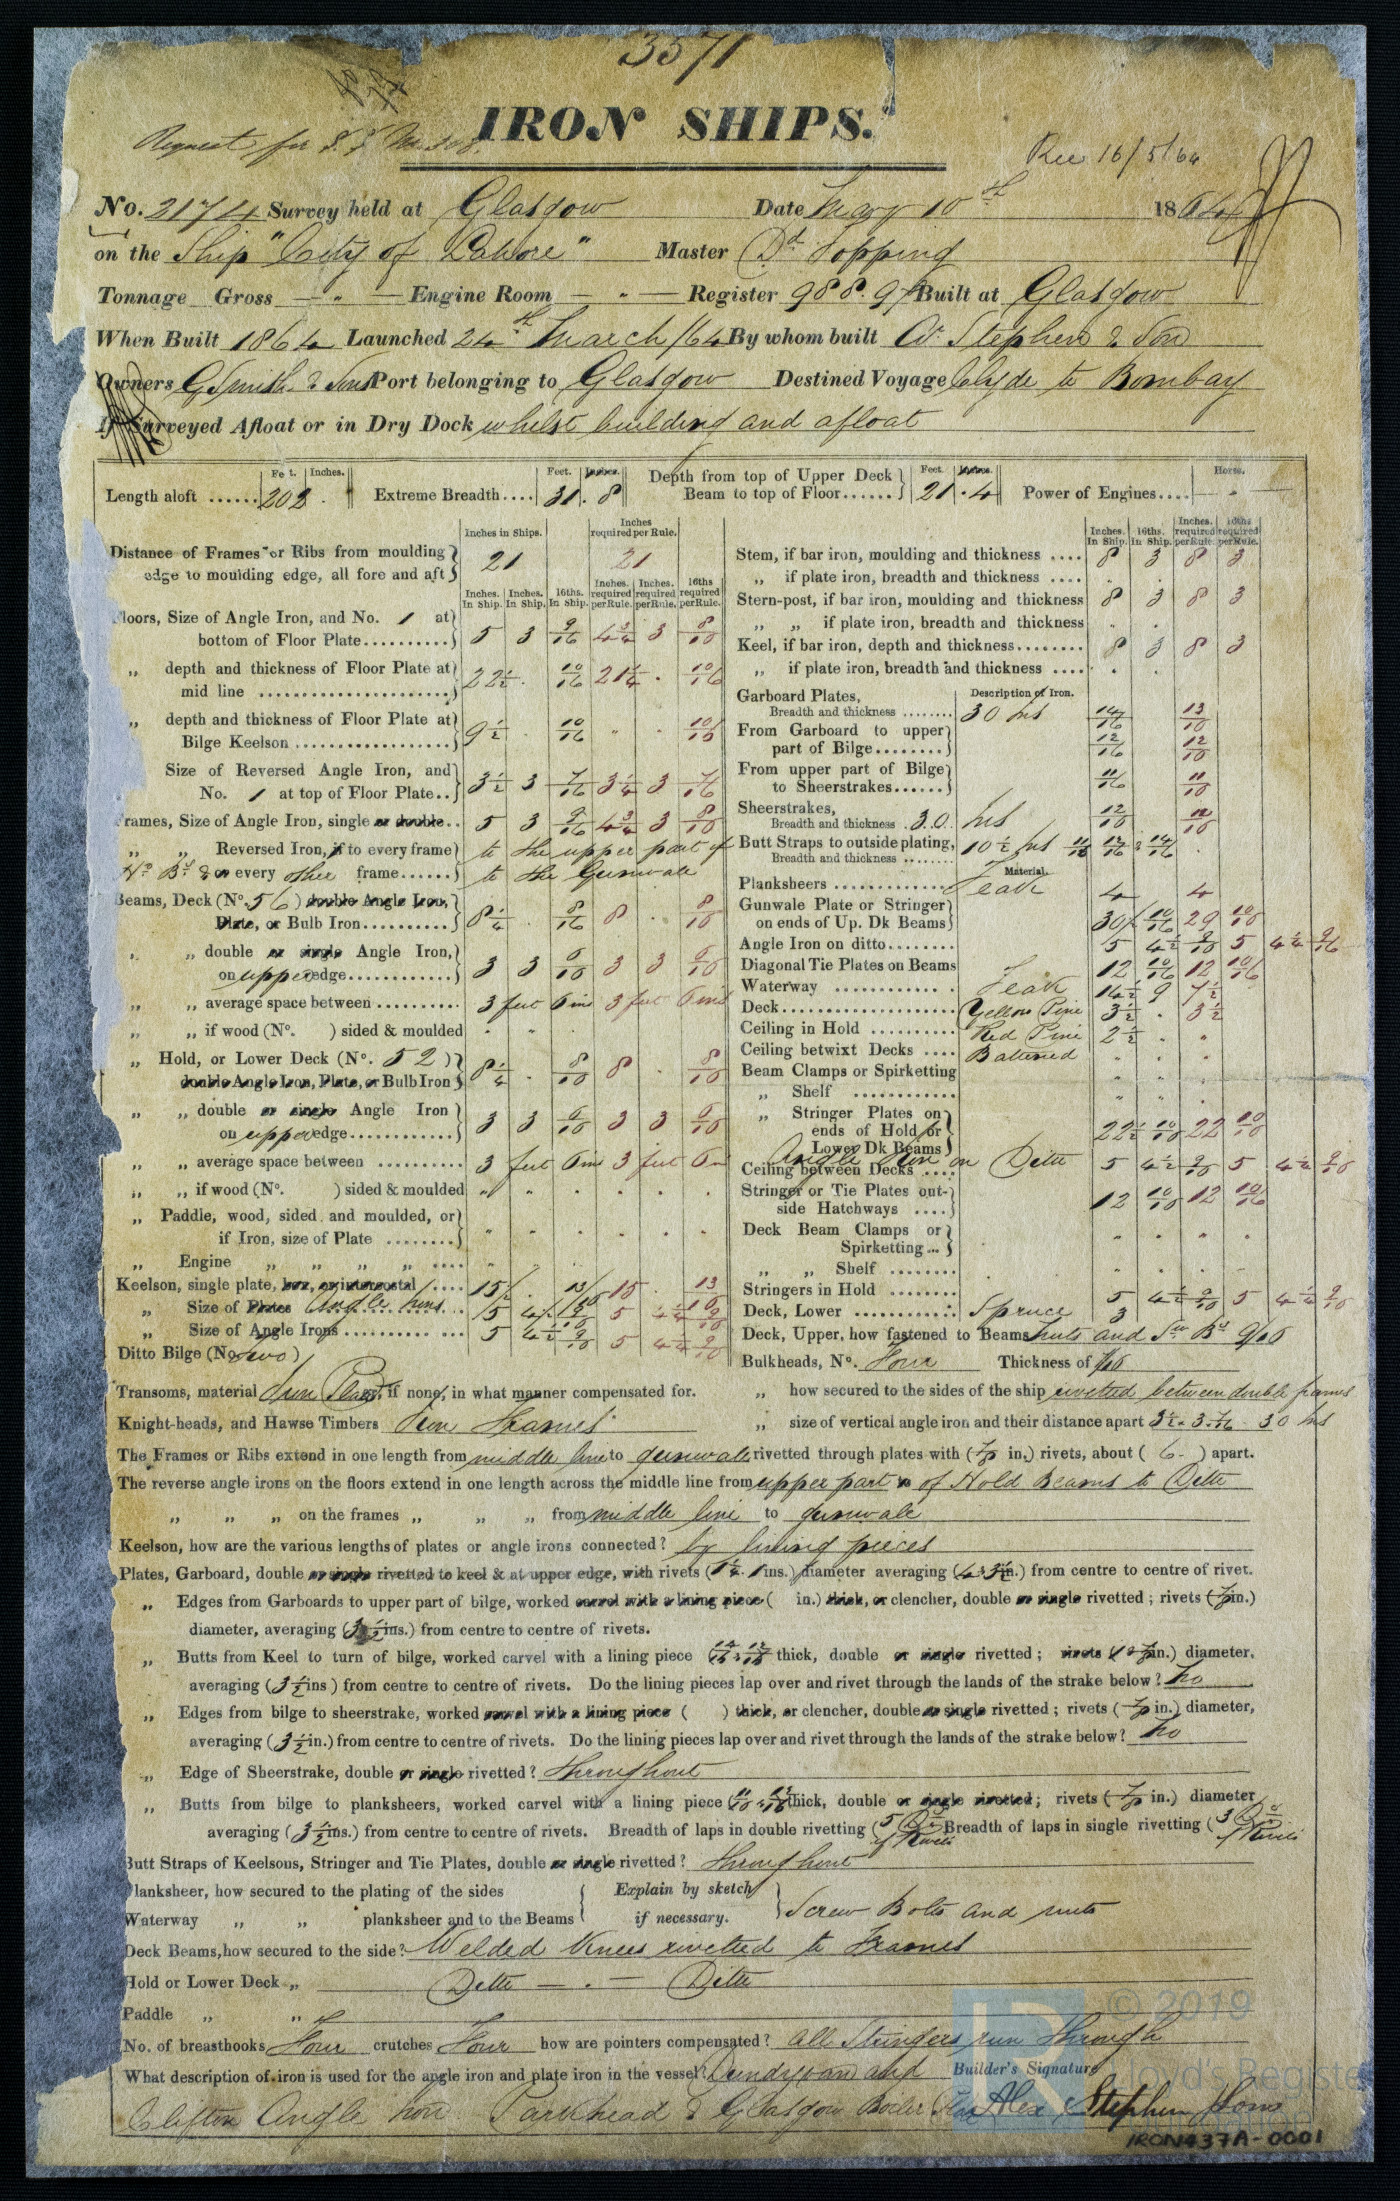 3571
IRON SHIPS.
Request for
Rec 16/5/64
No. 2174 Survey held at Glasgow Date May 10th 1864
on the Ship "City of Lahore" Master Dd. Topping
Tonnage Gross — " — Engine Room — " — Register 988.97 Built at Glasgow
When Built 1864 Launched 24th March/64 By whom built A. Stephen & Son
Owners G Smith & Sons Port belonging to Glasgow Destined Voyage Clyde to Bombay
If Surveyed Afloat or in Dry Dock whilst building and afloat
Feet. Inches. Feet. Inches. Feet. Inches. Horse.
Length aloft ...... 202 . Extreme Breadth.... 31.8 Depth from top of Upper Deck Beam to top of Floor...... 21.4 Power of Engines....
Inches in Ships. Inches required per Rule.
Distance of Frames or Ribs from moulding edge to moulding edge, all fore and aft 21 21
Inches. In Ship. Inches. In Ship. 16ths. In Ship. Inches. required per Rule. Inches. required per Rule. 16ths required per Rule.
Floors, Size of Angle Iron, and No. 1 at bottom of Floor Plate.......... 5 3 9/16 4 3/4 3 8/16
„ depth and thickness of Floor Plate at mid line 22 1/2 . 10/16 21 1/4 . 10/16
„ depth and thickness of Floor Plate at Bilge Keelson 9 1/2 . 10/16 " . 10/16
Size of Reversed Angle Iron, and No. 1 at top of Floor Plate.. 3 1/2 3 7/16 3 1/4 3 7/16
Frames, Size of Angle Iron, single or double.. 5 3 9/16 4 3/4 3 8/16
„ „ Reversed Iron, if to every frame to the upper part of
& or every other frame...... to the Gunwale
Beams, Deck (No. 56) double Angle Iron, Plate, or Bulb Iron.......... 8 1/4 . 8/16 8 . 8/16
„ „ double or single Angle Iron, on upper edge............ 3 3 6/16 3 3 6/16
„ „ average space between .......... 3 feet 6 ins 3 feet 6 ins
„ „ if wood (No. ) sided & moulded
„ Hold, or Lower Deck (No. 52) double Angle Iron, Plate, or Bulb Iron 8 1/4 . 8/16 8 . 8/16
„ „ double or single Angle Iron on upper edge............ 3 3 6/16 3 3 6/16
„ „ average space between .......... 3 feet 6 ins 3 feet 6 in
„ „ if wood (No. ) sided & moulded
„ Paddle, wood, sided and moulded, or if Iron, size of Plate ........
„ Engine „ „ „ „ ....
Keelson, single plate, box, or intercostal 15 . 13/16 15 . 13
„ Size of Plates Angle Irons
„ Size of Angle Irons 5 4 1/2 9/16 5 4 1/2 9/16
Ditto Bilge (No. two)
Inches. In Ship. 16ths. In Ship. Inches. required per Rule. 16ths required per Rule.
Stem, if bar iron, moulding and thickness .... 8 3 8 3
„ if plate iron, breadth and thickness ....
Stern-post, if bar iron, moulding and thickness 8 3 8 3
„ „ if plate iron, breadth and thickness
Keel, if bar iron, depth and thickness........ 8 3 8 3
„ if plate iron, breadth and thickness ....
Garboard Plates, Description of Iron.
Breadth and thickness ........ 30 Ins 14/16 13/16
From Garboard to upper part of Bilge........ 12/16 12/16
From upper part of Bilge to Sheerstrakes...... 11/16 11/16
Sheerstrakes, Breadth and thickness . 30 Ins 12/16 12/16
Butt Straps to outside plating, Breadth and thickness ........ 10 1/2 Ins 11/16 12/16 & 14/16
Material.
Planksheers ............ Teak 4 4
Gunwale Plate or Stringer on ends of Up. Dk Beams 30 10/16 29 10/16
Angle Iron on ditto........ 5 4 1/2 9/16 5 4 1/2 9/16
Diagonal Tie Plates on Beams 12 10/16 12 10/16
Waterway ............ Teak 14 1/2 9 7 1/2
Deck.................... Yellow Pine 3 1/2 . 3 1/2
Ceiling in Hold .......... Red Pine 2 1/2
Ceiling betwixt Decks .... Battened
Beam Clamps or Spirketting
„ Shelf ............
„ Stringer Plates on ends of Hold or Lower Dk Beams 22 1/2 10/16 22 10/16
Ceiling between Decks .... Angle Iron on Ditto 5 4 1/2 9/16 5 4 1/2 9/16
Stringer or Tie Plates outside Hatchways .... 12 10/16 12 10/16
Deck Beam Clamps or Spirketting...
„ „ Shelf ........
Stringers in Hold ........ 5 4 1/2 9/16 5 4 1/2 9/16
Deck, Lower ............ Spruce 3
Deck, Upper, how fastened to Beams nuts and Sw Bs 9/16
Bulkheads, No. Four Thickness of 7/16
„ how secured to the sides of the ship rivetted between double frames
„ size of vertical angle iron and their distance apart 3 1/2 . 3 . 7/16 30 Ins
Transoms, material Iron Plates, if none, in what manner compensated for.
Knight-heads, and Hawse Timbers Iron Frames
The Frames or Ribs extend in one length from middle line to gunwale rivetted through plates with (7/8 in.) rivets, about ( 6 ) apart.
The reverse angle irons on the floors extend in one length across the middle line from upper part of Hold Beams to Ditto
„ „ „ on the frames „ „ „ from middle line to gunwale
Keelson, how are the various lengths of plates or angle irons connected? by lining pieces
Plates, Garboard, double or single rivetted to keel & at upper edge, with rivets (1 1/4 . 1 ins.) diameter averaging (4 & 3 1/2 in.) from centre to centre of rivet.
„ Edges from Garboards to upper part of bilge, worked carvel with a lining piece ( in.) thick, or clencher, double or single rivetted; rivets (7/8 in.)
diameter, averaging (3 1/2 ins.) from centre to centre of rivets.
„ Butts from Keel to turn of bilge, worked carvel with a lining piece (14/16 & 12/16 thick, double or single rivetted; rivets (1 & 7/8 in.) diameter,
averaging (3 1/2 ins) from centre to centre of rivets. Do the lining pieces lap over and rivet through the lands of the strake below? No
„ Edges from bilge to sheerstrake, worked carvel with a lining piece ( ) thick, or clencher, double or single rivetted; rivets (7/8 in.) diameter,
averaging (3 1/2 in.) from centre to centre of rivets. Do the lining pieces lap over and rivet through the lands of the strake below? No
„ Edge of Sheerstrake, double or single rivetted? throughout
„ Butts from bilge to planksheers, worked carvel with a lining piece (11/16 & 12/16 thick, double or single rivetted; rivets (7/8 in.) diameter
averaging (3 1/2 ins.) from centre to centre of rivets. Breadth of laps in double rivetting (5 Dr of Rivets Breadth of laps in single rivetting (3 Dr of Rivets
Butt Straps of Keelsons, Stringer and Tie Plates, double or single rivetted? throughout
Planksheer, how secured to the plating of the sides Explain by sketch
Waterway „ „ planksheer and to the Beams if necessary. Screw Bolts and nuts
Deck Beams, how secured to the side? Welded Knees rivetted to Frames
Hold or Lower Deck „ Ditto — . — Ditto
Paddle „ „
No. of breasthooks Four crutches Four how are pointers compensated? all Stringers run through
What description of iron is used for the angle iron and plate iron in the vessel? Dundyvan and
Builder's Signature
Clifton Angle Iron Parkhead & Glasgow Boiler Plate Alex Stephen & Sons
© 2019
Lloyd's Register
IRON437A-0001